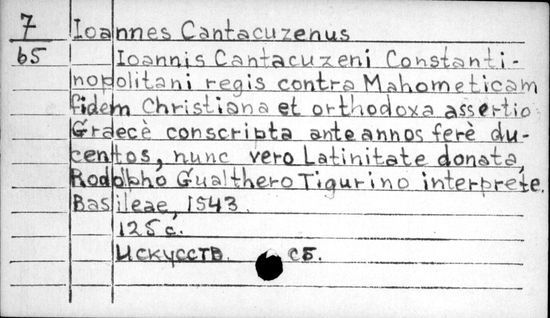 7 Ioannes Cantacuzenus
65 Ioannis Cantacuzeni Constanti-
nopolitani regis contra Mahometicam
fidem Christiana et orthodoxa assertio
Graecè conscripta ante annos ferè du-
centos, nunc vero Latinitate donata,
Rodolpho Gualthero Tigurino interprete.
Basileae, 1543.
125 с.
Искусств. сб.